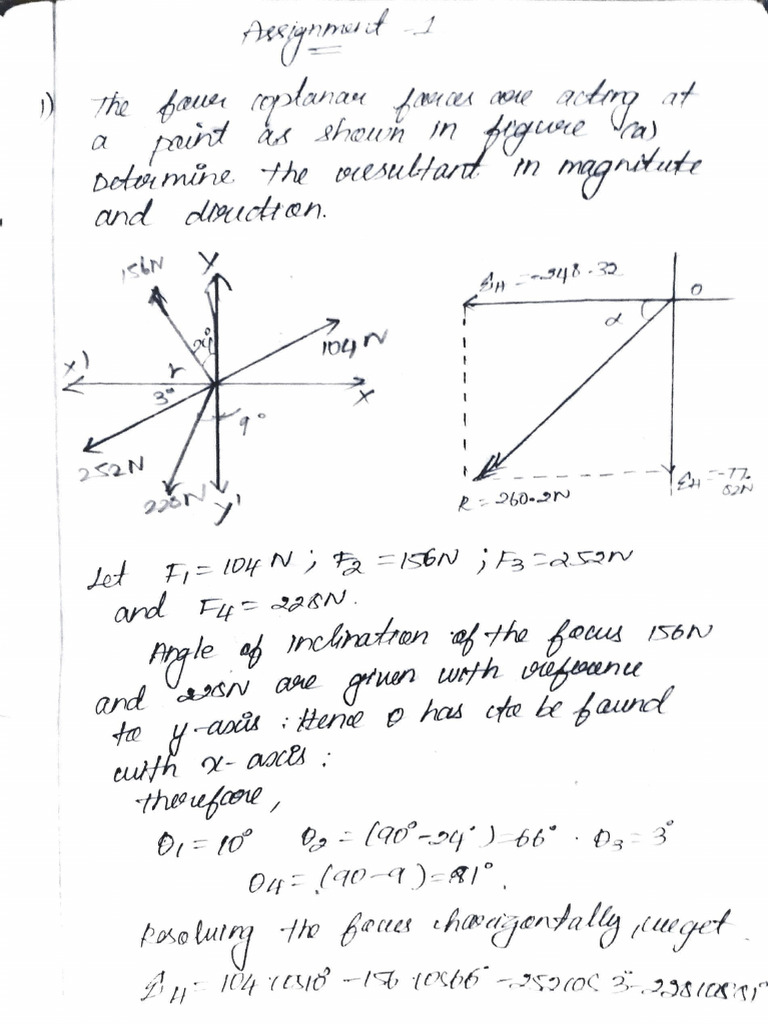 Assignment - 1
1) The four coplanar forces are acting at
a point as shown in figure (a)
Determine the resultant in magnitute
and direction.
156N
Y
24°
104 N
X'
3°
X
9°
252N
228N
Y'
ΣH = -248.32
O
α
ΣH = -77.
82N
R = 260.2N
Let F1 = 104 N ; F2 = 156N ; F3 = 252N
and F4 = 228N.
Angle of inclination of the focus 156N
and 228N are given with reference
to y-axis : Hence θ has to be found
with x-axis :
therefore,
θ1 = 10° θ2 = (90° - 24°) = 66° . θ3 = 3°
θ4 = (90 - 9) = 81°.
Resolving the forces horizontally, we get
ΣH = 104 cos10° - 156 cos66° - 252 cos 3° - 228 cos 81°